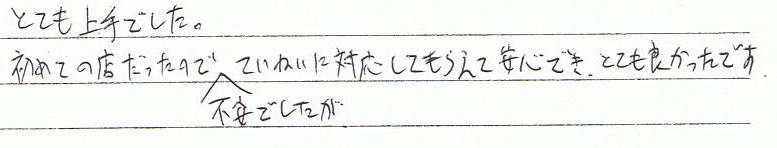 とても上手でした。
初めての店だったので ていねいに対応してもらえて安心でき、とても良かったです.
不安でしたが